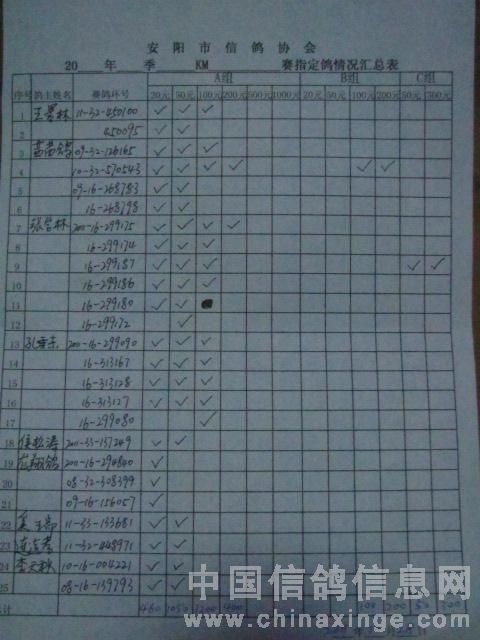 安阳市信鸽协会
20 年 季 KM 赛指定鸽情况汇总表
序号 鸽主姓名 赛鸽环号 A组 B组 C组
20元 50元 100元 200元 500元 1000元 20元 50元 100元 200元 50元 300元
1 11-32-450100 ✓ ✓ ✓
2 450095 ✓ ✓
3 09-32-126165 ✓ ✓ ✓
4 10-32-570543 ✓ ✓ ✓ ✓ ✓ ✓
5 09-16-268783 ✓ ✓
6 16-268798 ✓ ✓
7 2011-16-299175 ✓ ✓ ✓ ✓
8 16-299174 ✓ ✓ ✓
9 16-299187 ✓ ✓ ✓ ✓ ✓
10 16-299186 ✓ ✓ ✓
11 16-299180 ✓ ✓
12 16-299172 ✓
13 2011-16-299090 ✓ ✓ ✓
14 16-313167 ✓ ✓ ✓
15 16-313128 ✓ ✓ ✓
16 16-313127 ✓ ✓ ✓
17 16-299080 ✓
18 2011-33-137249 ✓ ✓
19 2011-16-294840 ✓
20 08-32-308399 ✓
21 09-16-156057 ✓
22 11-33-133681 ✓ ✓
23 11-32-448971 ✓ ✓
24 10-16-004221 ✓ ✓
25 08-16-139793 ✓ ✓
计 460 1050 1200 400 100 200 50 300
中国信鸽信息网
www.chinaxinge.com